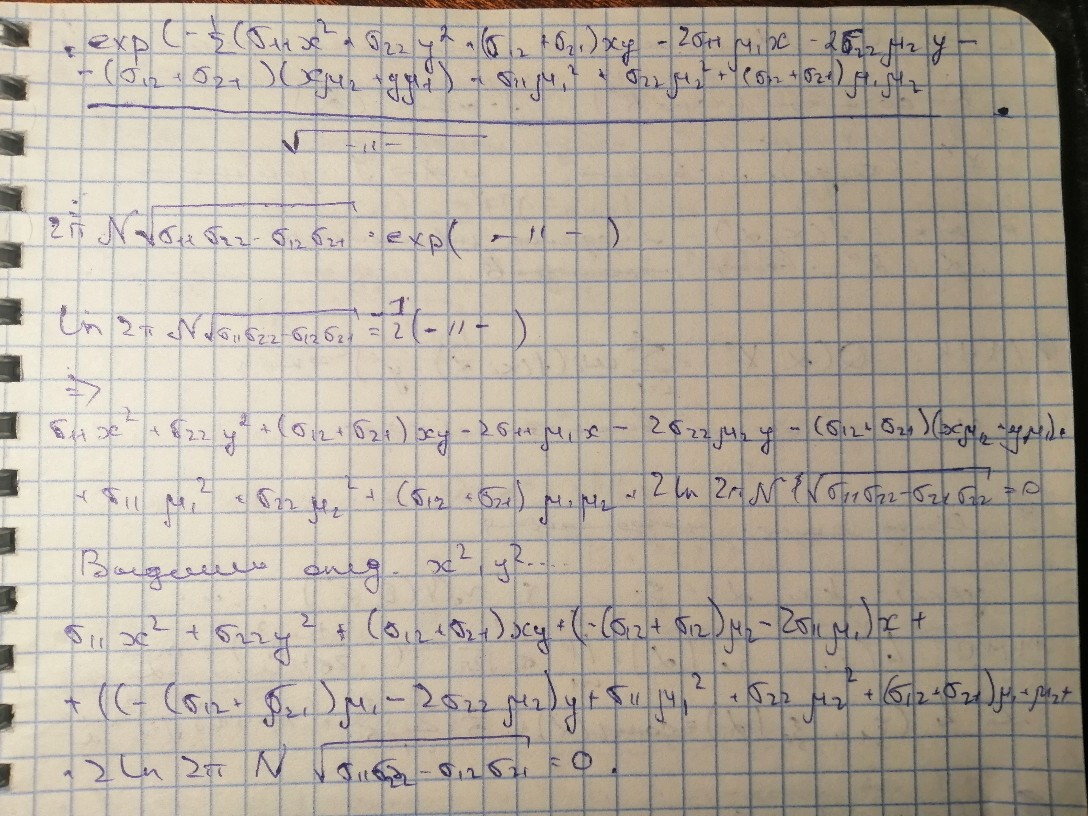 exp(-½(σ₁₁x² + σ₂₂y² + (σ₁₂ + σ₂₁)xy - 2σ₁₁μ₁x - 2σ₂₂μ₂y -
- (σ₁₂ + σ₂₁)(xμ₂ + yμ₁) + σ₁₁μ₁² + σ₂₂μ₂² + (σ₁₂ + σ₂₁)μ₁μ₂
√ -〃-
2π N√σ₁₁σ₂₂ - σ₁₂σ₂₁ = exp( -〃- )
ln 2π N√σ₁₁σ₂₂ - σ₁₂σ₂₁ = -1/2 (-〃- )
=>
σ₁₁x² + σ₂₂y² + (σ₁₂ + σ₂₁)xy - 2σ₁₁μ₁x - 2σ₂₂μ₂y - (σ₁₂ + σ₂₁)(xμ₂ + yμ₁) +
+ σ₁₁μ₁² + σ₂₂μ₂² + (σ₁₂ + σ₂₁)μ₁μ₂ + 2 ln 2π N √σ₁₁σ₂₂ - σ₂₁σ₂₂ = 0
x², y²....
σ₁₁x² + σ₂₂y² + (σ₁₂ + σ₂₁)xy + (-(σ₁₂ + σ₁₂)μ₂ - 2σ₁₁μ₁)x +
+ ((-(σ₁₂ + σ₂₁)μ₁ - 2σ₂₂μ₂)y + σ₁₁μ₁² + σ₂₂μ₂² + (σ₁₂ + σ₂₁)μ₁ + μ₂ +
+ 2 ln 2π N √σ₁₁σ₂₂ - σ₁₂σ₂₁ = 0.